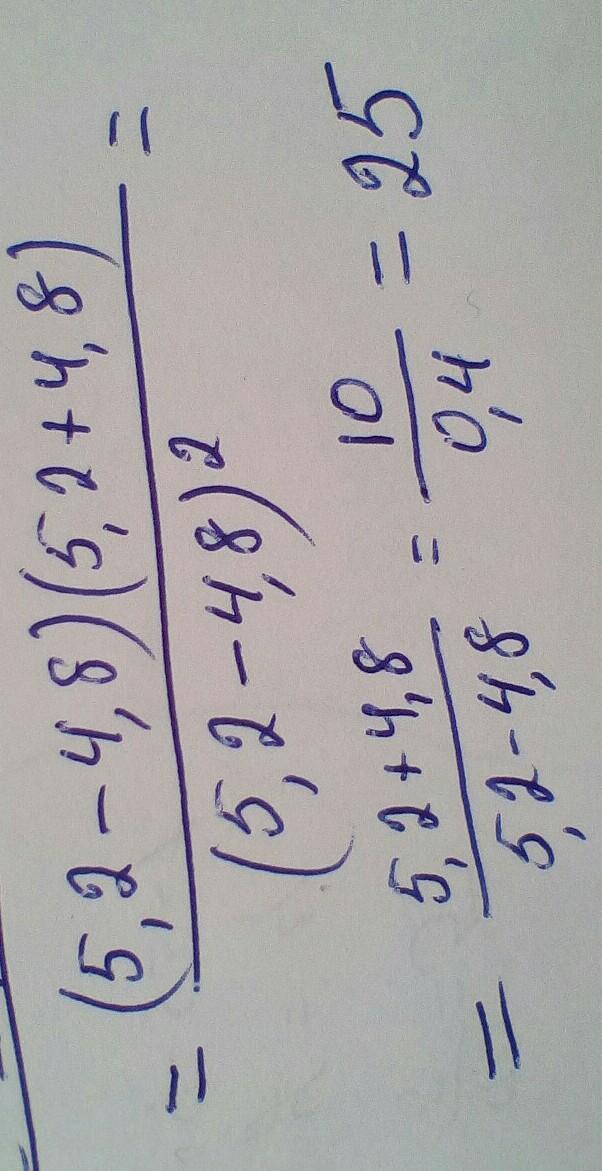 = (5,2-4,8)(5,2+4,8) / (5,2-4,8)² =
= 5,2+4,8 / 5,2-4,8 = 10 / 0,4 = 25